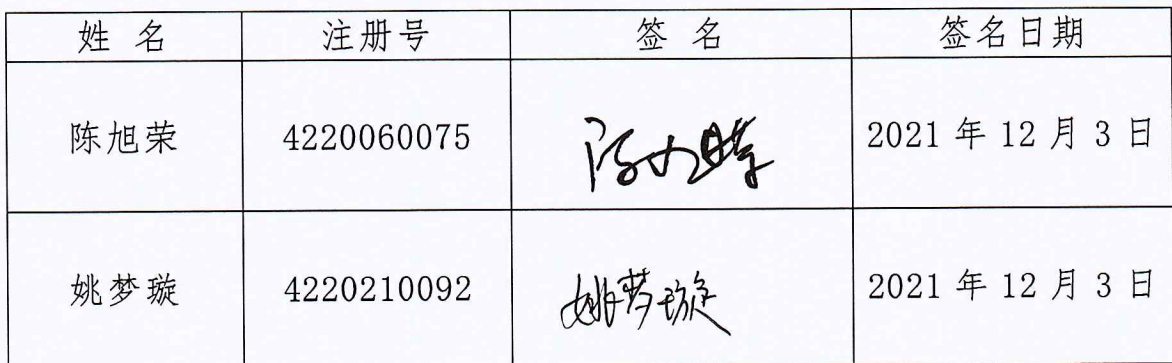 姓 名 注册号 签 名 签名日期
陈旭荣 4220060075 陈旭荣 2021 年 12 月 3 日
姚梦璇 4220210092 姚梦璇 2021 年 12 月 3 日